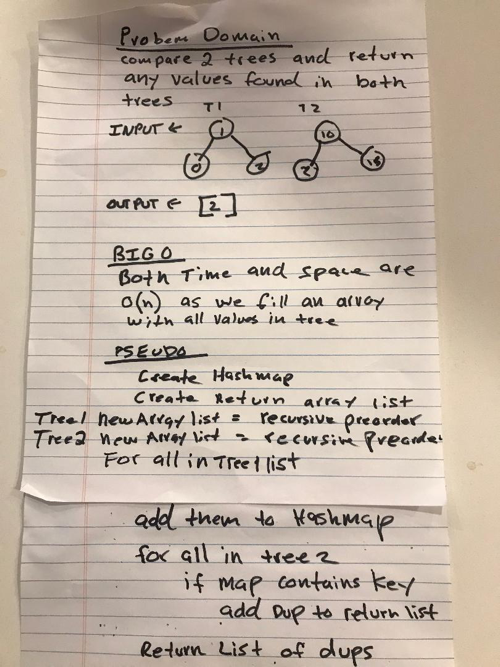 Probem Domain
compare 2 trees and return
any values found in both
trees
T1 T2
INPUT ←
1 10
0 2 2 18
OUTPUT ← [2]
BIG O
Both Time and space are
O(n) as we fill an array
with all values in tree
PSEUDO
Create Hashmap
Create Return array list
Tree1 new Array list = recursive preorder
Tree2 new Array list = recursive preorder
For all in Tree1 list
add them to Hashmap
for all in tree 2
if map contains key
add Dup to return list
Return List of dups